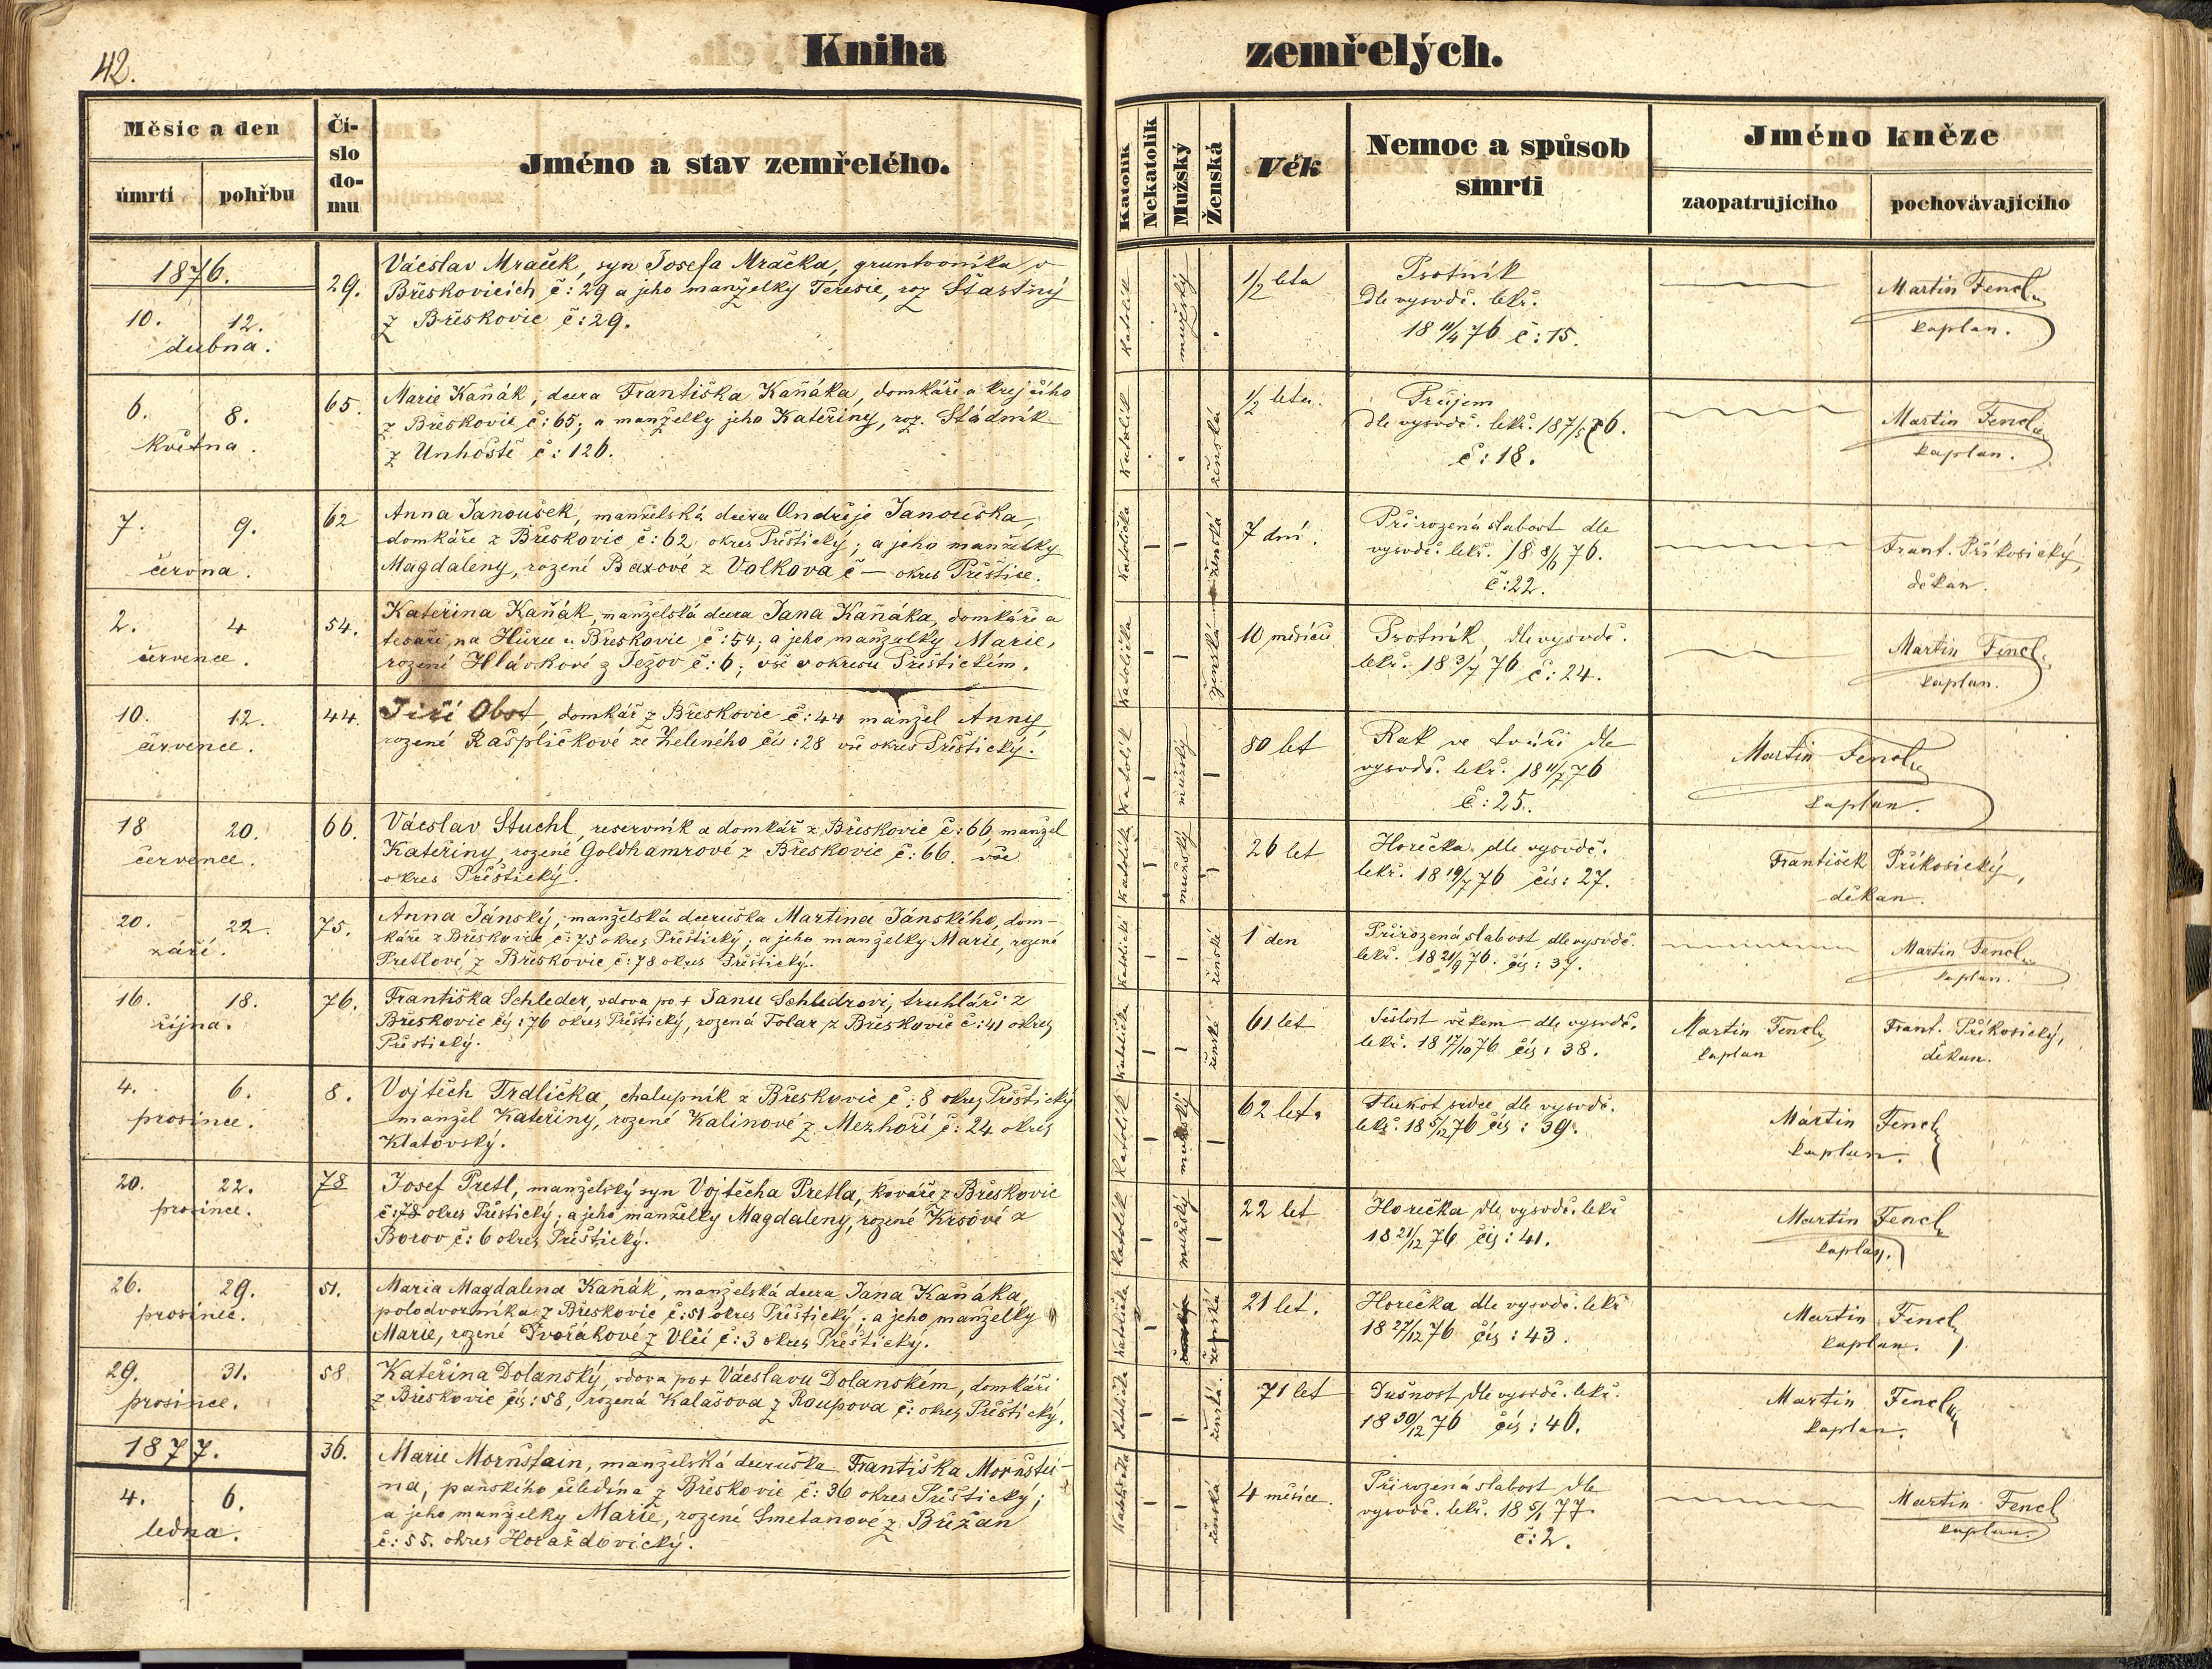 42.
Kniha zemřelých.
Měsíc a den
úmrtí
pohřbu
Čí-
slo
do-
mu
Jméno a stav zemřelého.
Katolík
Nekatolík
Mužský
Ženská
Věk
Nemoc a spůsob
smrti
Jméno kněze
zaopatrujícího
pochovávajícího
1876.
10. 12.
dubna.
29.
Václav Mraček, syn Josefa Mračka, gruntovníka v
Břeskovicích č: 29 a jeho manželky Teresie, roz Šťastný
z Břeskovic č: 29.
katolík
mužský
1/2 leta
Psotník
Dle vysvdč. lekř.
18 11/4 76 č: 15.
Martin Fencl
kaplan.
6. 8.
května.
65.
Marie Kaňák, dcera Františka Kaňáka, domkáře a krejčího
z Břeskovic č: 65; a manželky jeho Kateřiny, roz. Stádník
z Unhoště č: 126.
katolík
ženská
1/2 leta.
Průjem
dle vysvdč. lekř. 18 7/5 76.
č: 18.
Martin Fencl
kaplan.
7. 9.
června.
62
Anna Janoušek, manželská dcera Ondřeje Janouška,
domkáře z Břeskovic č: 62 okres Přeštický; a jeho manželky
Magdaleny, rozené Baxové z Volkova č — okres Přeštice.
katolička
ženská
7 dní.
Přirozená slabost dle
vysvdč. lekř. 18 8/6 76.
č: 22.
Frant. Příkosický,
děkan.
2. 4
července.
54.
Kateřina Kaňák, manželská dcera Jana Kaňáka, domkáře a
tesaře, na Hůrce u Břeskovic č: 54; a jeho manželky Marie,
rozené Hlávkové z Ježov č: 6; vše v okresu Přeštickém.
katolička
ženská
10 měsíců
Psotník, dle vysvdč.
lekř. 18 3/7 76 č: 24.
Martin Fencl
kaplan.
10. 12.
července.
44.
Jiří Obst, domkář z Břeskovic č: 44 manžel Anny,
rozené Rašpličkové ze Zeleného čís: 28 vše okres Přeštický.
katolík
mužský
80 let
Rak ve tváři dle
vysvdč. lekř. 18 11/7 76
č: 25.
Martin Fencl
kaplan.
18 20.
července.
66.
Václav Stuchl, reservník a domkář z Břeskovic č: 66, manžel
Kateřiny, rozené Goldhamrové z Břeskovic č: 66. vše
okres Přeštický.
katolík
mužský
26 let
Horečka dle vysvdč.
lekř. 18 19/7 76 čís: 27.
František Příkosický,
děkan.
20. 22.
září.
75.
Anna Jánský, manželská dceruška Martina Jánského, dom-
káře z Břeskovic č: 75 okres Přeštický; a jeho manželky Marie, rozené
Pretlové z Břeskovic č: 78 okres Přeštický.
katolická
ženská
1 den
Přirozená slabost, dle vysvdč.
lekř. 18 21/9 76. čís: 37.
Martin Fencl
kaplan.
16. 18.
října.
76.
Františka Schleder, vdova po + Janu Schledrovi, truhláři z
Břeskovic čís: 76 okres Přeštický, rozená Tolar z Břeskovic č: 41 okres
Přeštický.
katolička
ženská
61 let
Sešlost věkem dle vysvdč.
lekř. 18 17/10 76 čís: 38.
Martin Fencl
kaplan
Frant. Příkosický,
děkan.
4. 6.
prosince.
8.
Vojtěch Trdlička, chalupník z Břeskovic č: 8 okres Přeštický
manžel Kateřiny, rozené Kalinové z Mezhoří č: 24 okres
Klatovský.
katolík
mužský
62 let.
Tlukot srdce dle vysvdč.
lekř. 18 5/12 76 čís: 39.
Martin Fencl
kaplan.
20. 22.
prosince.
78
Josef Pretl, manželský syn Vojtěcha Pretla, kováře z Břeskovic
č: 78 okres Přeštický; a jeho manželky Magdaleny, rozené Krsové z
Borov č: 6 okres Přeštický.
katolík
mužský
22 let
Horečka dle vysvdč. lekř
18 21/12 76 čís: 41.
Martin Fencl
kaplan.
26. 29.
prosince.
51.
Maria Magdalena Kaňák, manželská dcera Jana Kaňáka,
polodvorníka z Břeskovic č: 51 okres Přeštický; a jeho manželky
Marie, rozené Dvořákové z Vlčí č: 3 okres Přeštický.
katolička
ženská
21 let.
Horečka dle vysvdč. lekř
18 27/12 76 čís: 43.
Martin Fencl
kaplan.
29. 31.
prosince.
58
Kateřina Dolanský, vdova po + Václavu Dolanském, domkáři
z Břeskovic čís: 58, rozená Kalašova z Roupova č: okres Přeštický.
katolička
ženská.
71 let
Dušnost dle vysvdč. lekř.
18 30/12 76 čís: 46.
Martin Fencl
kaplan.
1877.
4. 6.
ledna.
36.
Marie Mornštain, manželská dceruška Františka Mornštei-
na, panského čeledína z Břeskovic č: 36 okres Přeštický;
a jeho manželky Marie, rozené Smetanove z Břežan
č: 55. okres Horažďovický.
katolička
ženská
4 měsíce.
Přirozená slabost dle
vysvdč. lekř. 18 5/1 77.
č: 2.
Martin Fencl
kaplan.